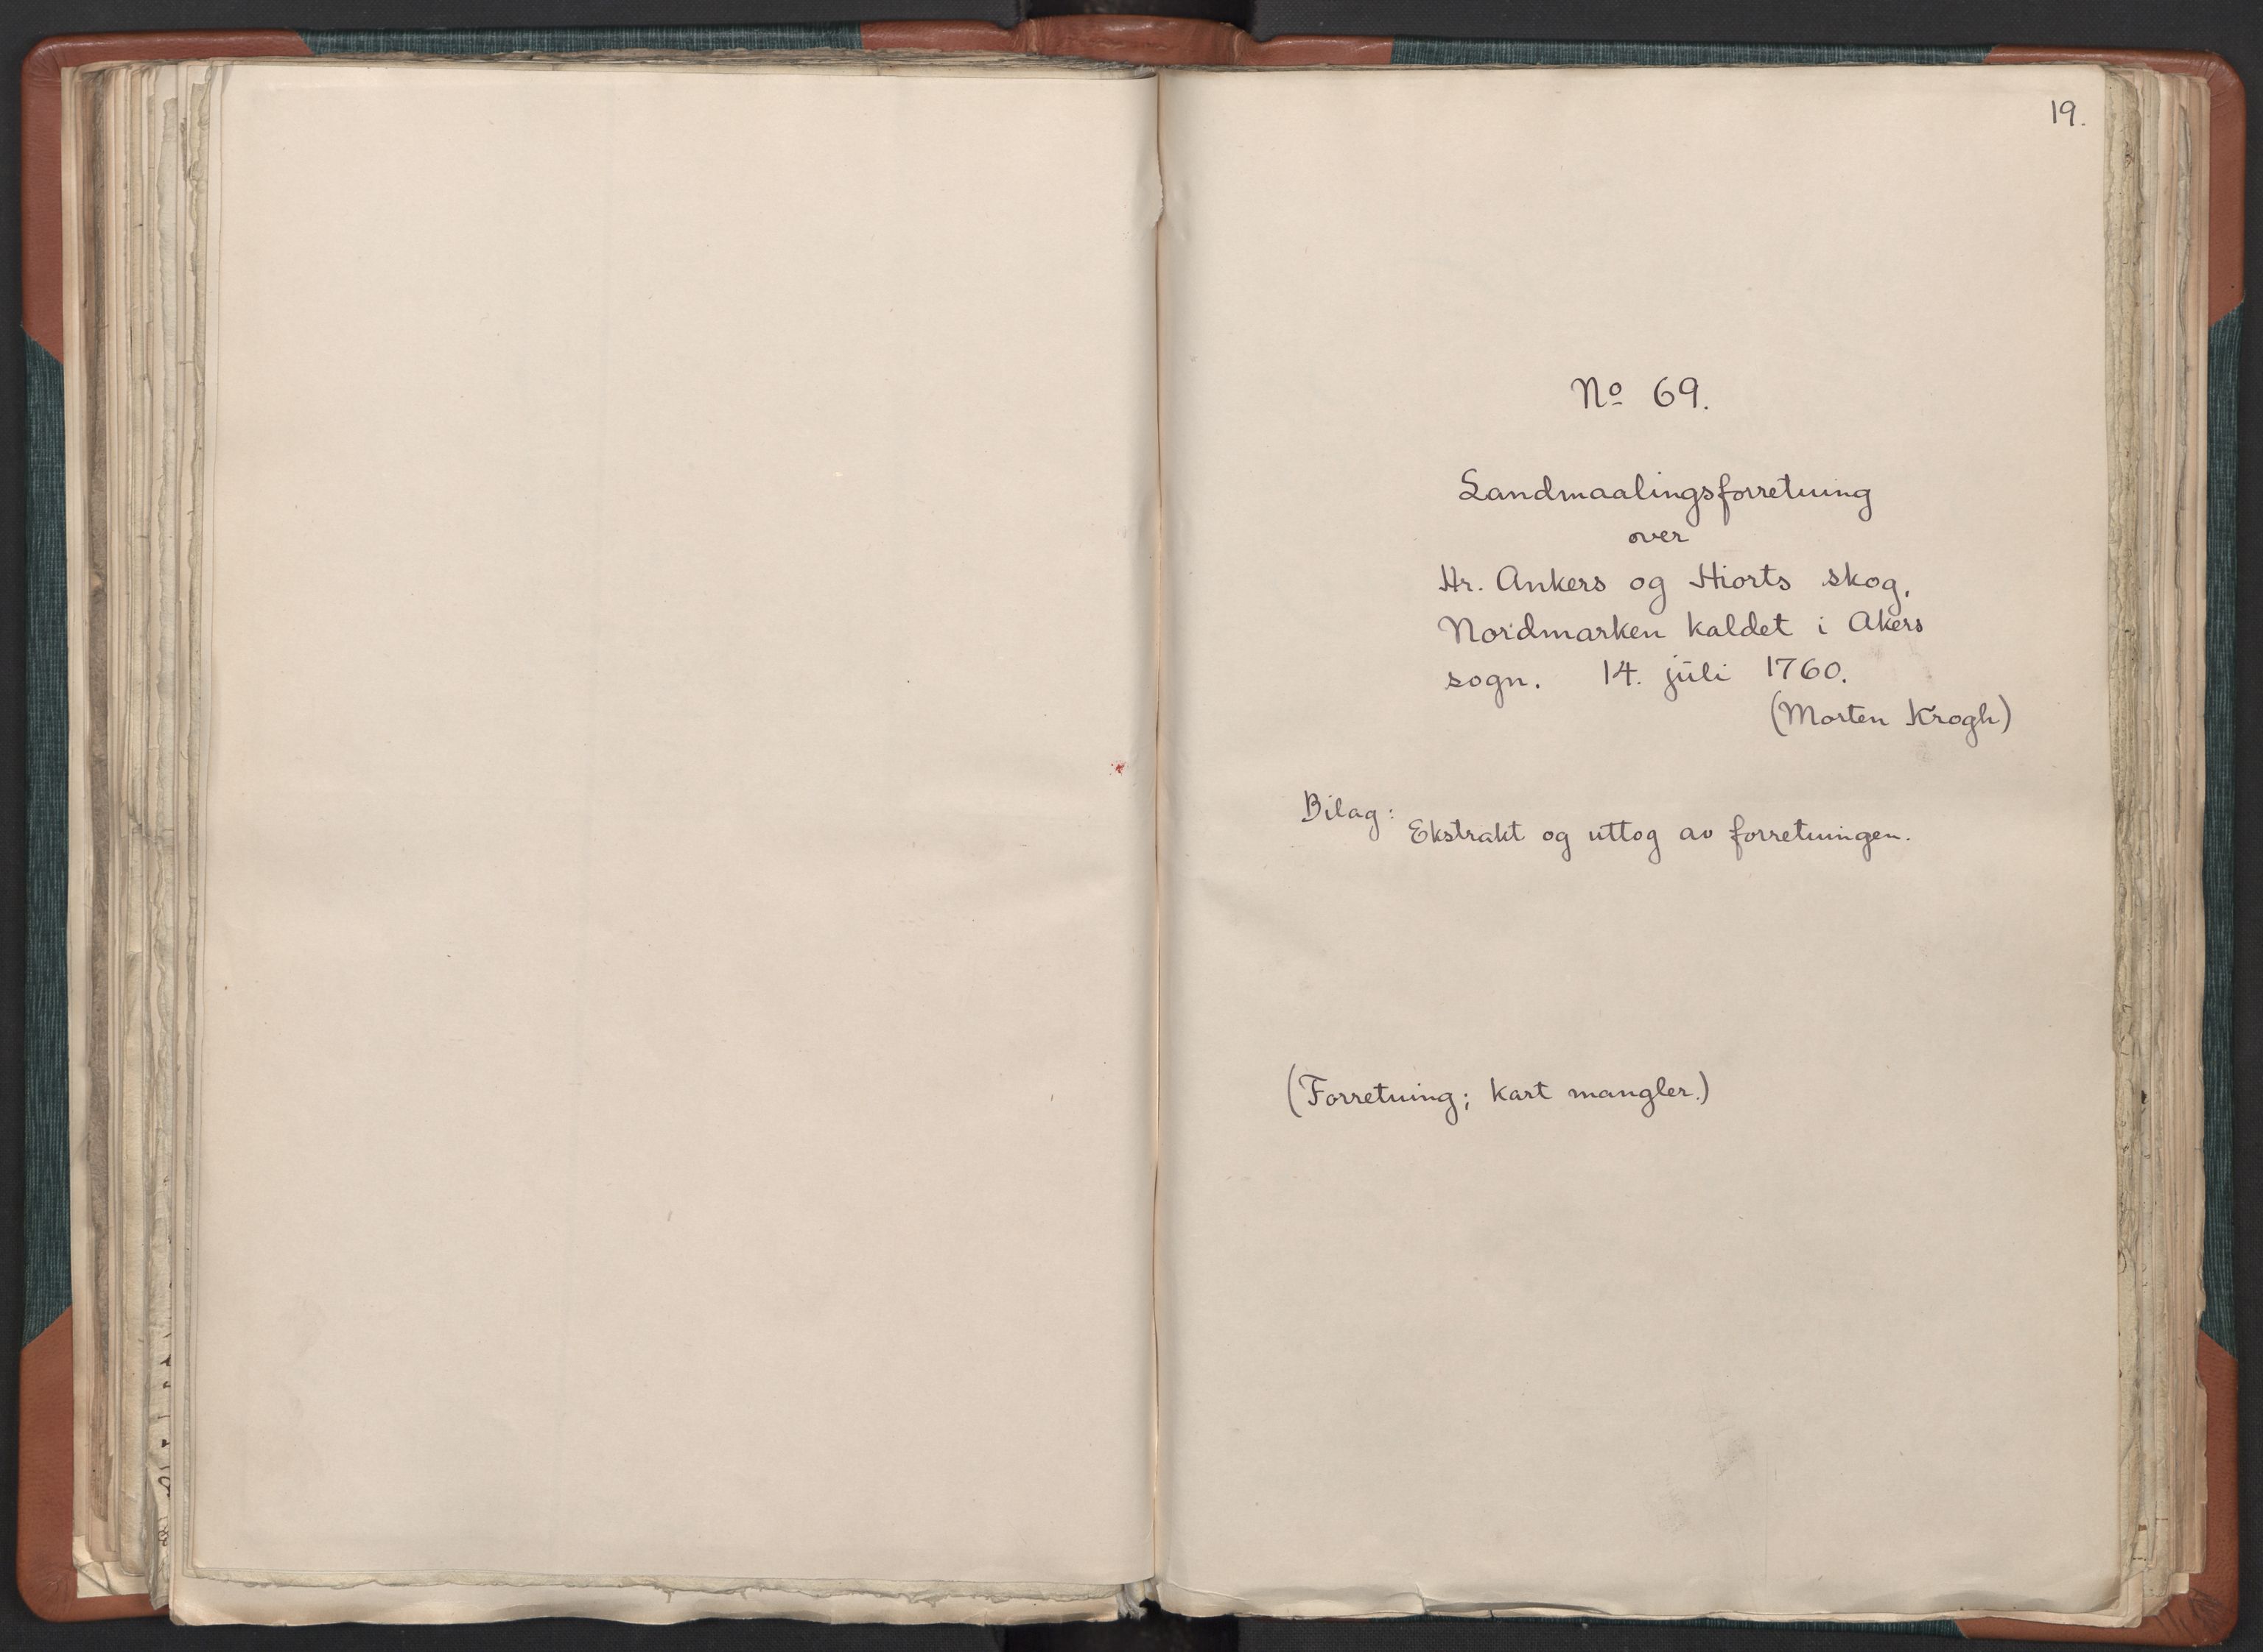 19.
Nº 69.
Landmaalingsforretning
over
Hr. Ankers og Hiorts skog,
Nordmarken kaldet i Akers
sogn. 14. juli 1760.
(Morten Krogh)
Bilag:
Ekstrakt og uttog av forretningen.
(Forretning; kart mangler.)